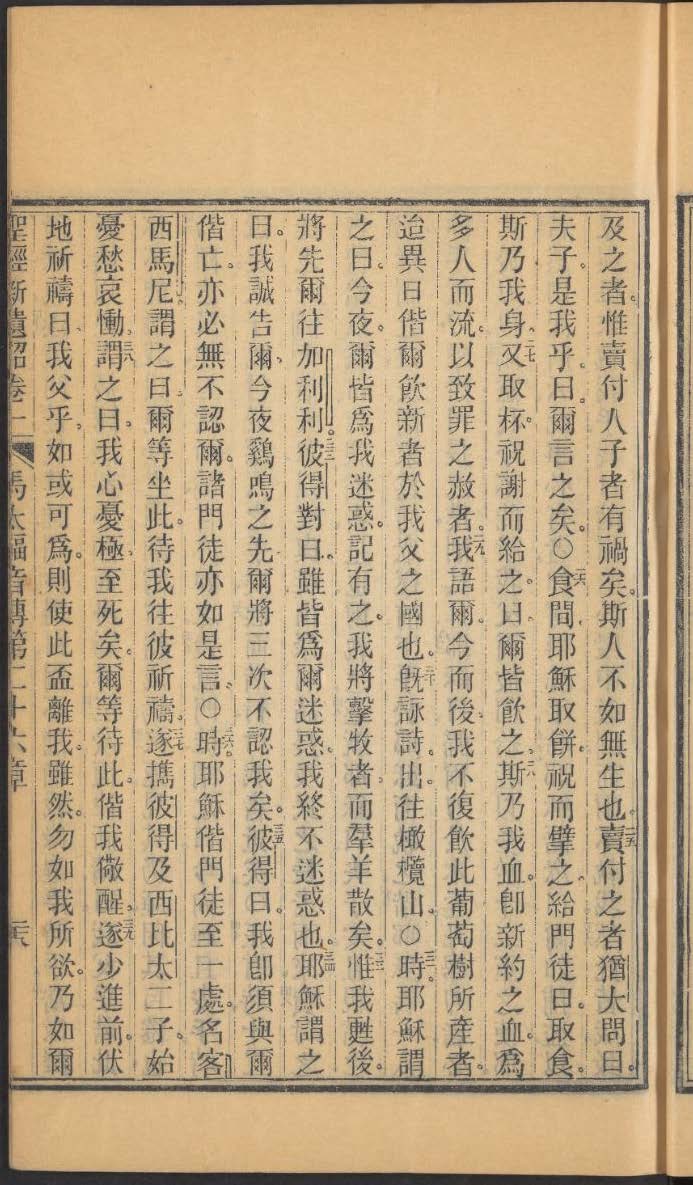 及之者。惟賣付人子者有禍矣。斯人不如無生也。二五賣付之者猶大問曰。
夫子。是我乎。曰。爾言之矣。○二六食間、耶穌取餅。祝而擘之、給門徒曰。取食。
斯乃我身。二七又取杯。祝謝而給之。曰爾皆飲之。二八斯乃我血。卽新約之血。爲
多人而流。以致罪之赦者。二九我語爾。今而後、我不復飲此葡萄樹所產者。
迨異日偕爾飲新者於我父之國也。三十旣詠詩。出往橄欖山。○三一時。耶穌謂
之曰。今夜。爾皆爲我迷惑。記有之。我將擊牧者。而羣羊散矣。三二惟我甦後。
將先爾往加利利。三三彼得對曰。雖皆爲爾迷惑。我終不迷惑也。三四耶穌謂之
曰。我誠告爾、今夜鷄鳴之先。爾將三次不認我矣。三五彼得曰。我卽須與爾
偕亡。亦必無不認爾。諸門徒亦如是言。○三六時耶穌偕門徒至一處。名客
西馬尼。謂之曰。爾等坐此。待我往彼祈禱。三七遂攜彼得及西比太二子。始
憂愁哀慟。三八謂之曰。我心憂極、至死矣。爾等待此。偕我儆醒。三九遂少進前。伏
地祈禱曰。我父乎。如或可爲。則使此盃離我。雖然。勿如我所欲。乃如爾
聖經新遺詔卷一 馬太福音傳第二十六章 二六